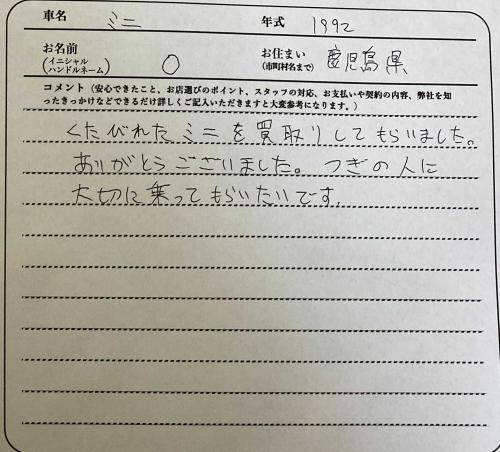 車名 ミニ 年式 1992
お名前 (イニシャル ハンドルネーム) O お住まい (市町村名まで) 鹿児島県
コメント(安心できたこと、お店選びのポイント、スタッフの対応、お支払いや契約の内容、弊社を知
ったきっかけなどできるだけ詳しくご記入いただきますと大変参考になります。)
くたびれたミニを買取りしてもらいました。
ありがとうございました。つぎの人に
大切に乗ってもらいたいです。